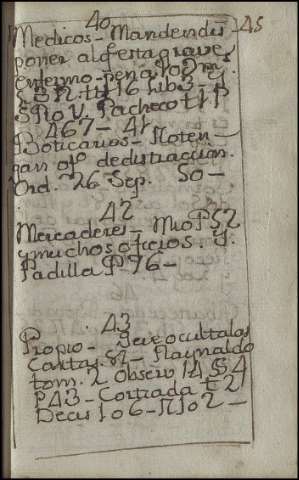 40
45
Medicos - Mandendis
poner al qe esta grave
enfermo - pena 10 D m.
L 3 N. tt 16 lib 3 - y
P. Pacheco tt
467 - 41
Boticarios - Noten
gan ofo de distraccion.
Ord. 26 Sep. 50 -
42
Mercaderes - Mio P 52
y muchos oficios. y.
Padilla P 76 -
43
Propio - Seve ocultalos
Cartas. 82 - Haynaldo
tom. 2 Observ 14 § 4
P 43 - Cortiada t 2
Decis 106 - N 102 -